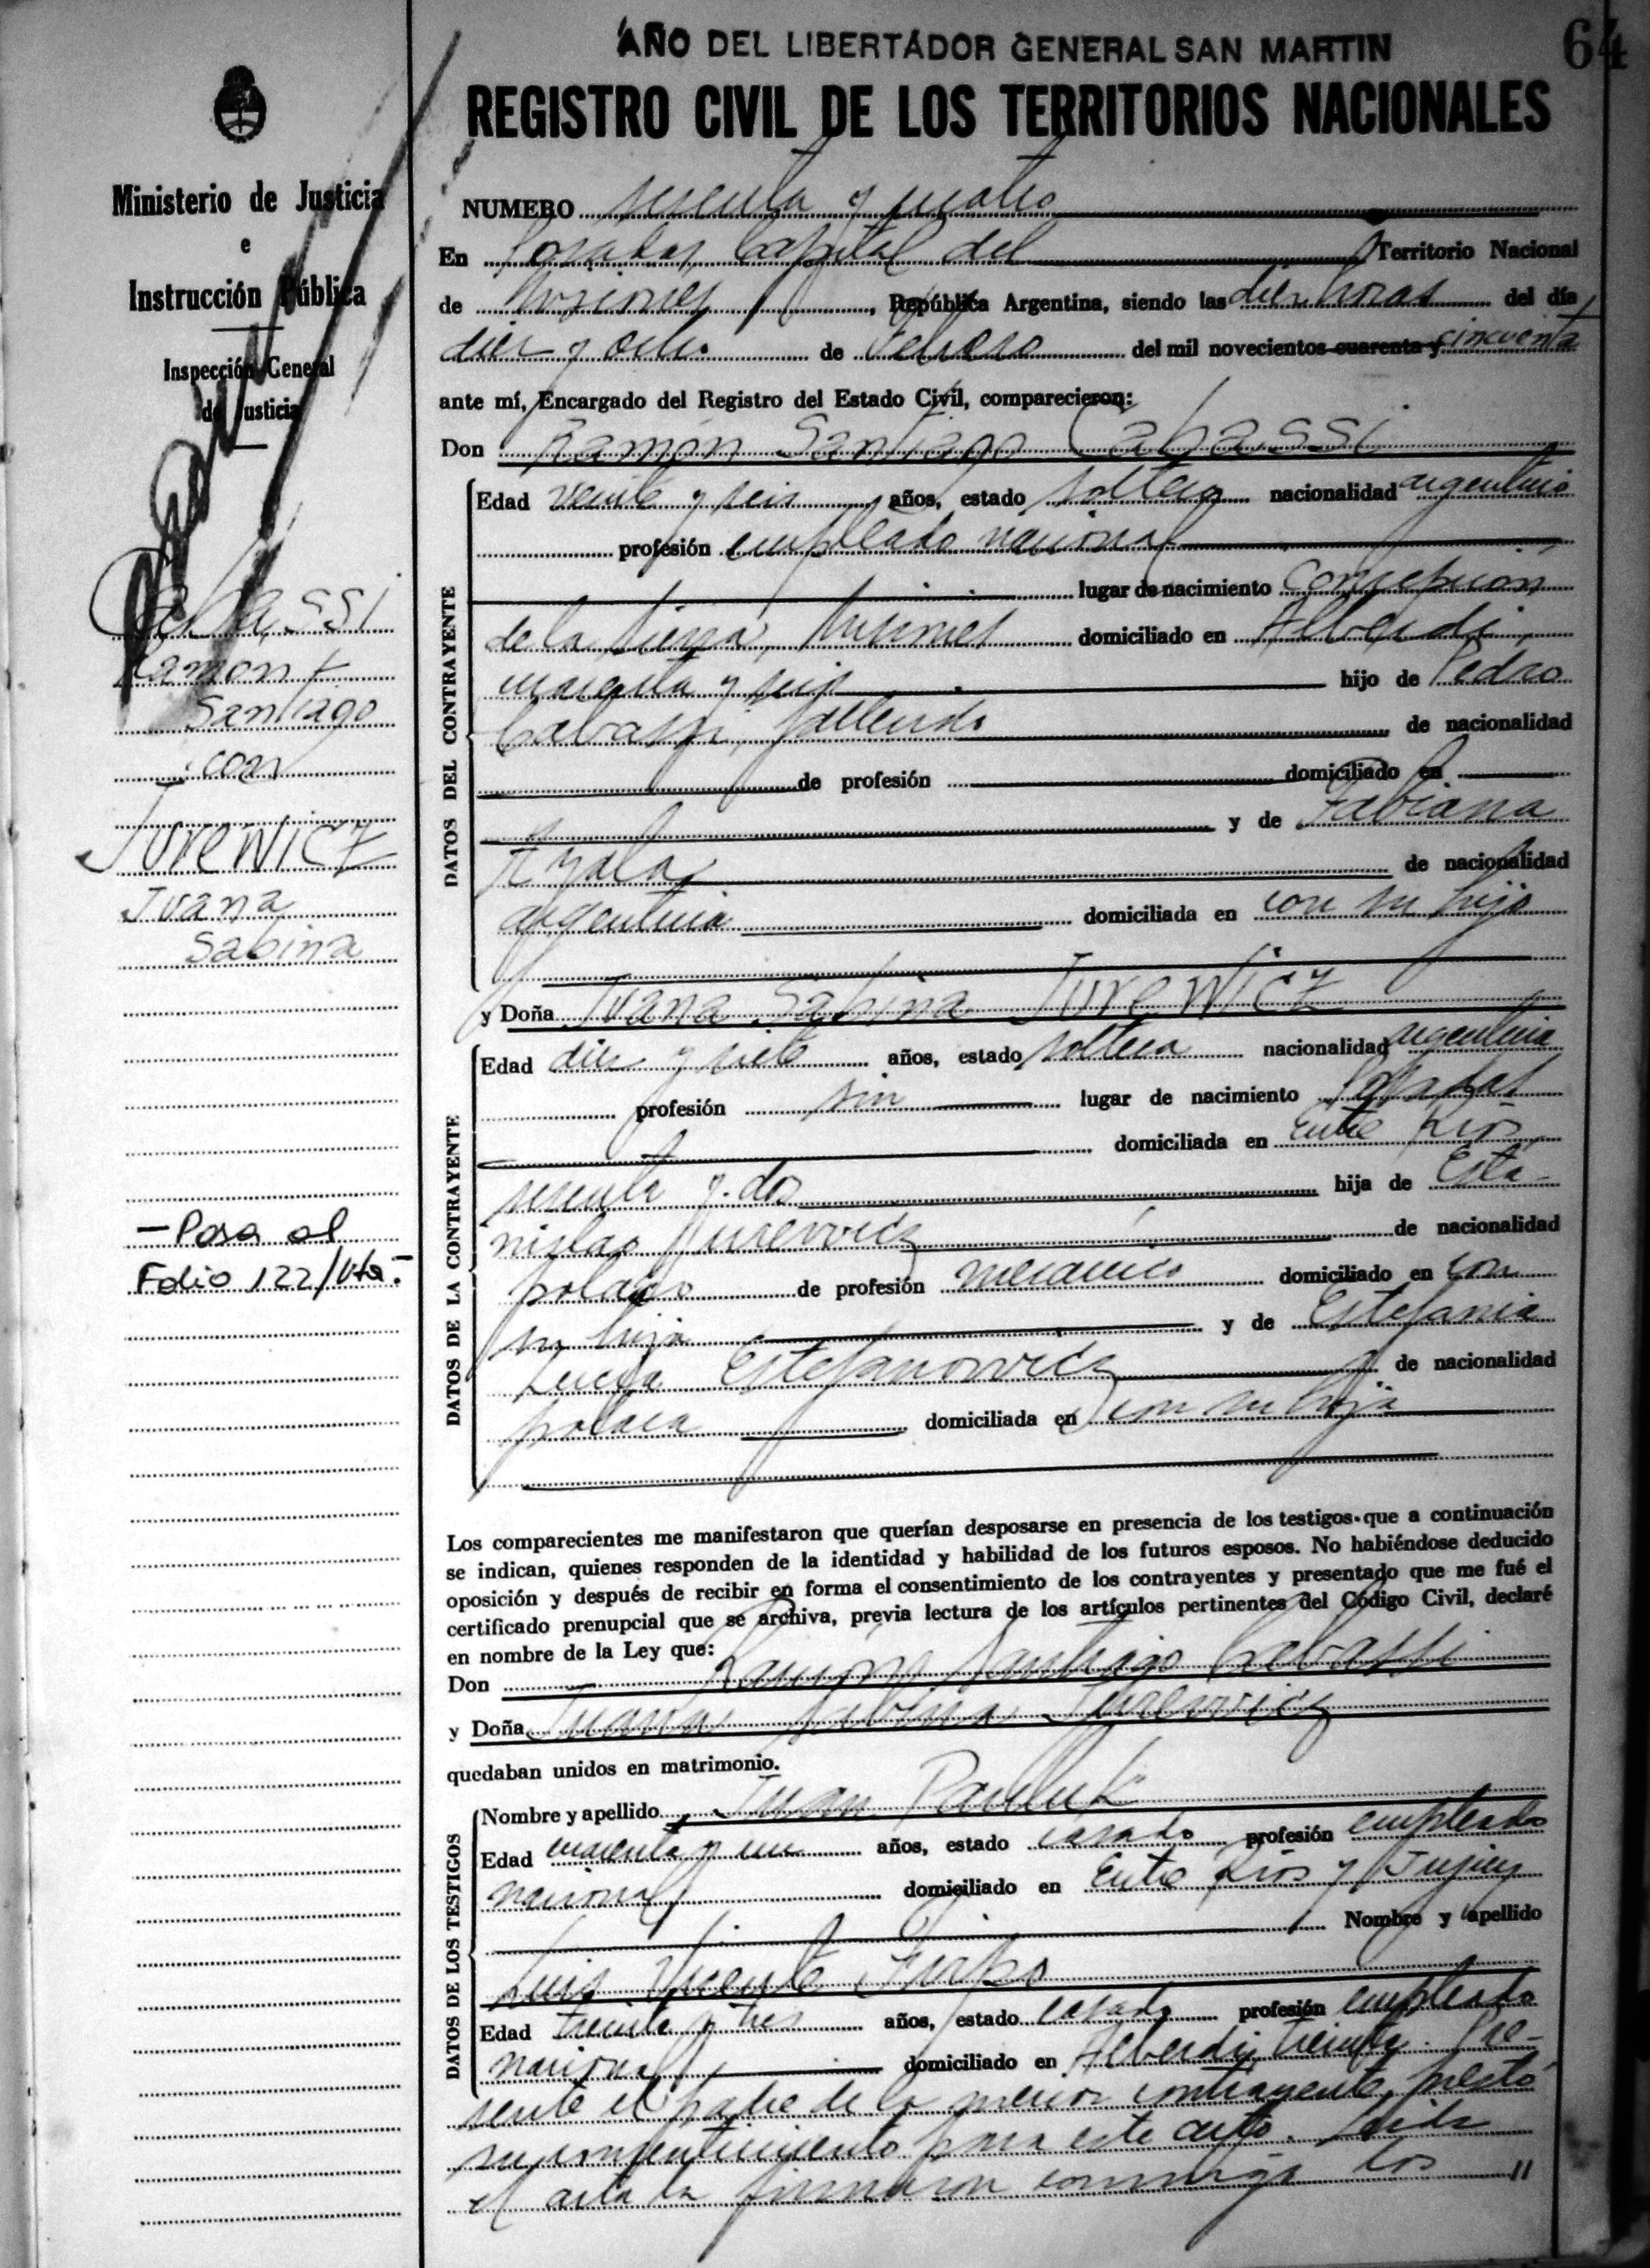 AÑO DEL LIBERTADOR GENERAL SAN MARTIN
64
REGISTRO CIVIL DE LOS TERRITORIOS NACIONALES
Ministerio de Justicia
e
Instrucción Pública
Inspección General
de Justicia
Cabassi
Ramón
Santiago
con
Jurewicz
Juana
Sabina
- Pasa al
Folio 122/Vta.-
NUMERO sesenta y cuatro
En Posadas Capital del Territorio Nacional
de Misiones, República Argentina, siendo las diez horas del día
diez y ocho de Febrero del mil novecientos cuarenta y cincuenta
ante mí, Encargado del Registro del Estado Civil, comparecieron:
Don Ramón Santiago Cabassi
DATOS DEL CONTRAYENTE
Edad veinte y seis años, estado soltero nacionalidad argentino
profesión empleado nacional
lugar de nacimiento Concepción
de la Sierra, Misiones domiciliado en Alberdi
cuarenta y seis hijo de Pedro
Cabassi, fallecido de nacionalidad
de profesión domiciliado en
y de Fabiana
Ayala de nacionalidad
argentina domiciliada en con su hijo
y Doña Juana Sabina Jurewicz
DATOS DE LA CONTRAYENTE
Edad diez y siete años, estado soltera nacionalidad argentina
profesión sin lugar de nacimiento Posadas
domiciliada en Entre Ríos
sesenta y dos hija de Esta-
nislao Jurewicz de nacionalidad
polaco de profesión mecánico domiciliado en con
su hija y de Estefania
Estefanowicz de nacionalidad
polaca domiciliada en con su hija
Los comparecientes me manifestaron que querían desposarse en presencia de los testigos que a continuación
se indican, quienes responden de la identidad y habilidad de los futuros esposos. No habiéndose deducido
oposición y después de recibir en forma el consentimiento de los contrayentes y presentado que me fué el
certificado prenupcial que se archiva, previa lectura de los artículos pertinentes del Código Civil, declaré
en nombre de la Ley que:
Don Ramón Santiago Cabassi
y Doña Juana Sabina Jurewicz
quedaban unidos en matrimonio.
DATOS DE LOS TESTIGOS
Nombre y apellido Juan Pauluk
Edad cuarenta y un años, estado casado profesión empleado
nacional domiciliado en Entre Ríos y Jujuy
Nombre y apellido
Luis Vicente
Edad treinta y tres años, estado casado profesión empleado
nacional domiciliado en Alberdi treinta. Pre-
sente el padre de la menor contrayente, prestó
su consentimiento para este acto. Leida
el acta la firmaron conmigo los //